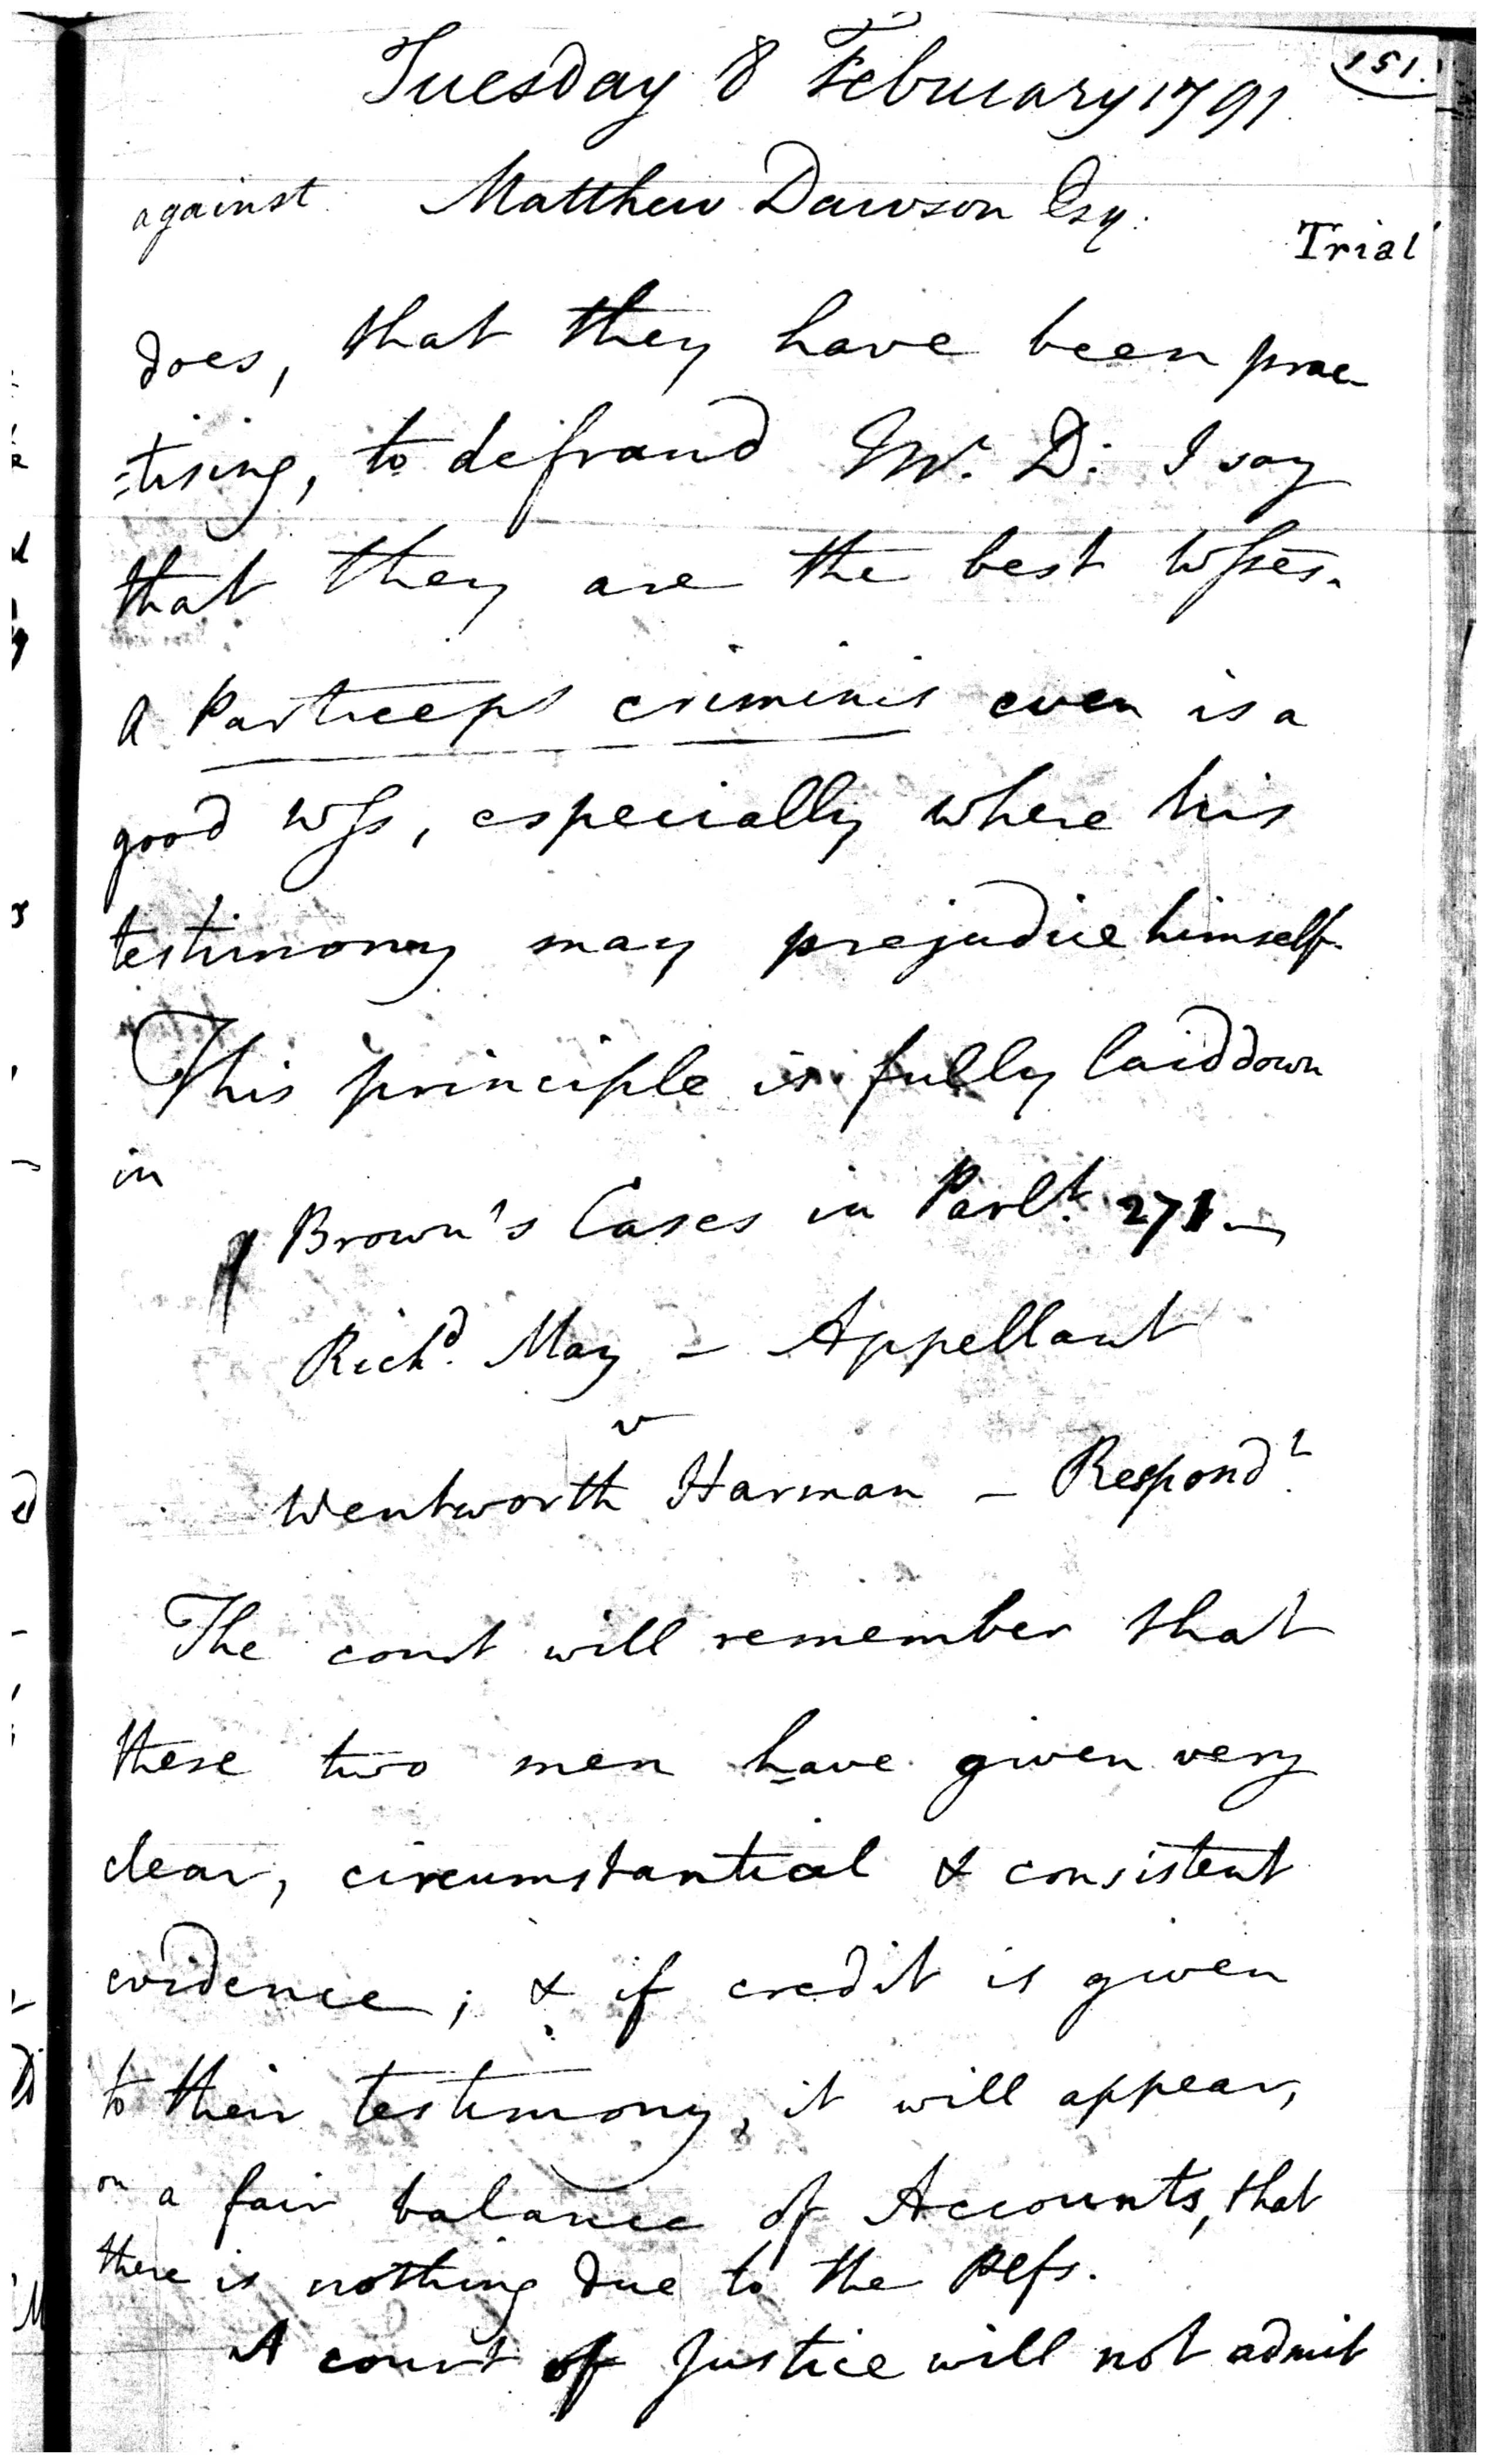 151.
Tuesday 8 February 1791
against Matthew Dawson Esq.
Trial
does, that they have been prac
=tising, to defraud Mr. D. I say
that they are the best Wsses.
A Particeps criminis even is a
good Wss, especially where his
testimony may prejudice himself.
This principle is fully laid down
in
Brown's Cases in Parlt. 271
Richd. May - Appellant
v
Wentworth Harman - Respondt.
The court will remember that
these two men have given very
clear, circumstantial & consistent
evidence; & if credit is given
to their testimony, it will appear,
on a fair balance of Accounts, that
there is nothing due to the Plfs.
A court of Justice will not admit